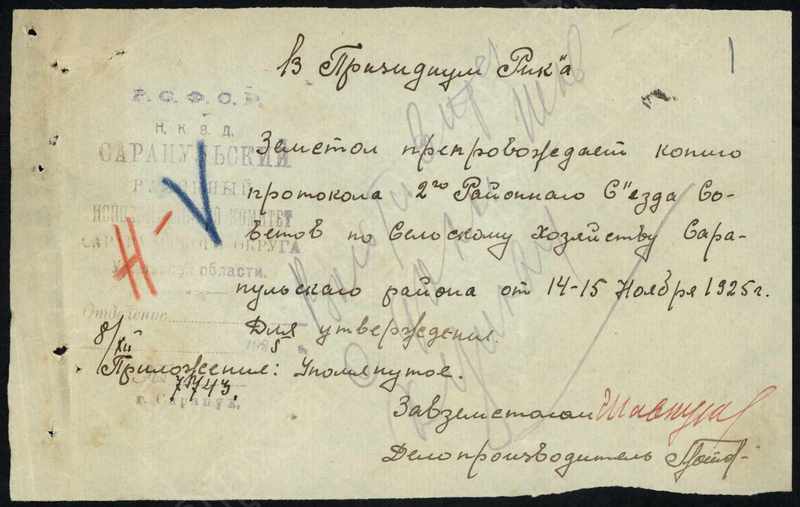 В Призидиум Рик"а
1
Р.С.Ф.С.Р.
Н.К.В.Д.
САРАПУЛЬСКИЙ
РАЙОННЫЙ
ИСПОЛНИТЕЛЬНЫЙ КОМИТЕТ
САРАПУЛЬСКОГО ОКРУГА
Уральской области.
Отделение
8/XII 1925
№ 7743.
г. Сарапул.
Н-V
Земстол препровождает копию
протокола 2го Районнаго С"езда Со-
ветов по Сельскому Хозяйству Сара-
пульскаго района от 14-15 Ноября 1925г.
Для утверждения.
Приложения: Упомянутое.
Завземстолом
Делопроизводитель